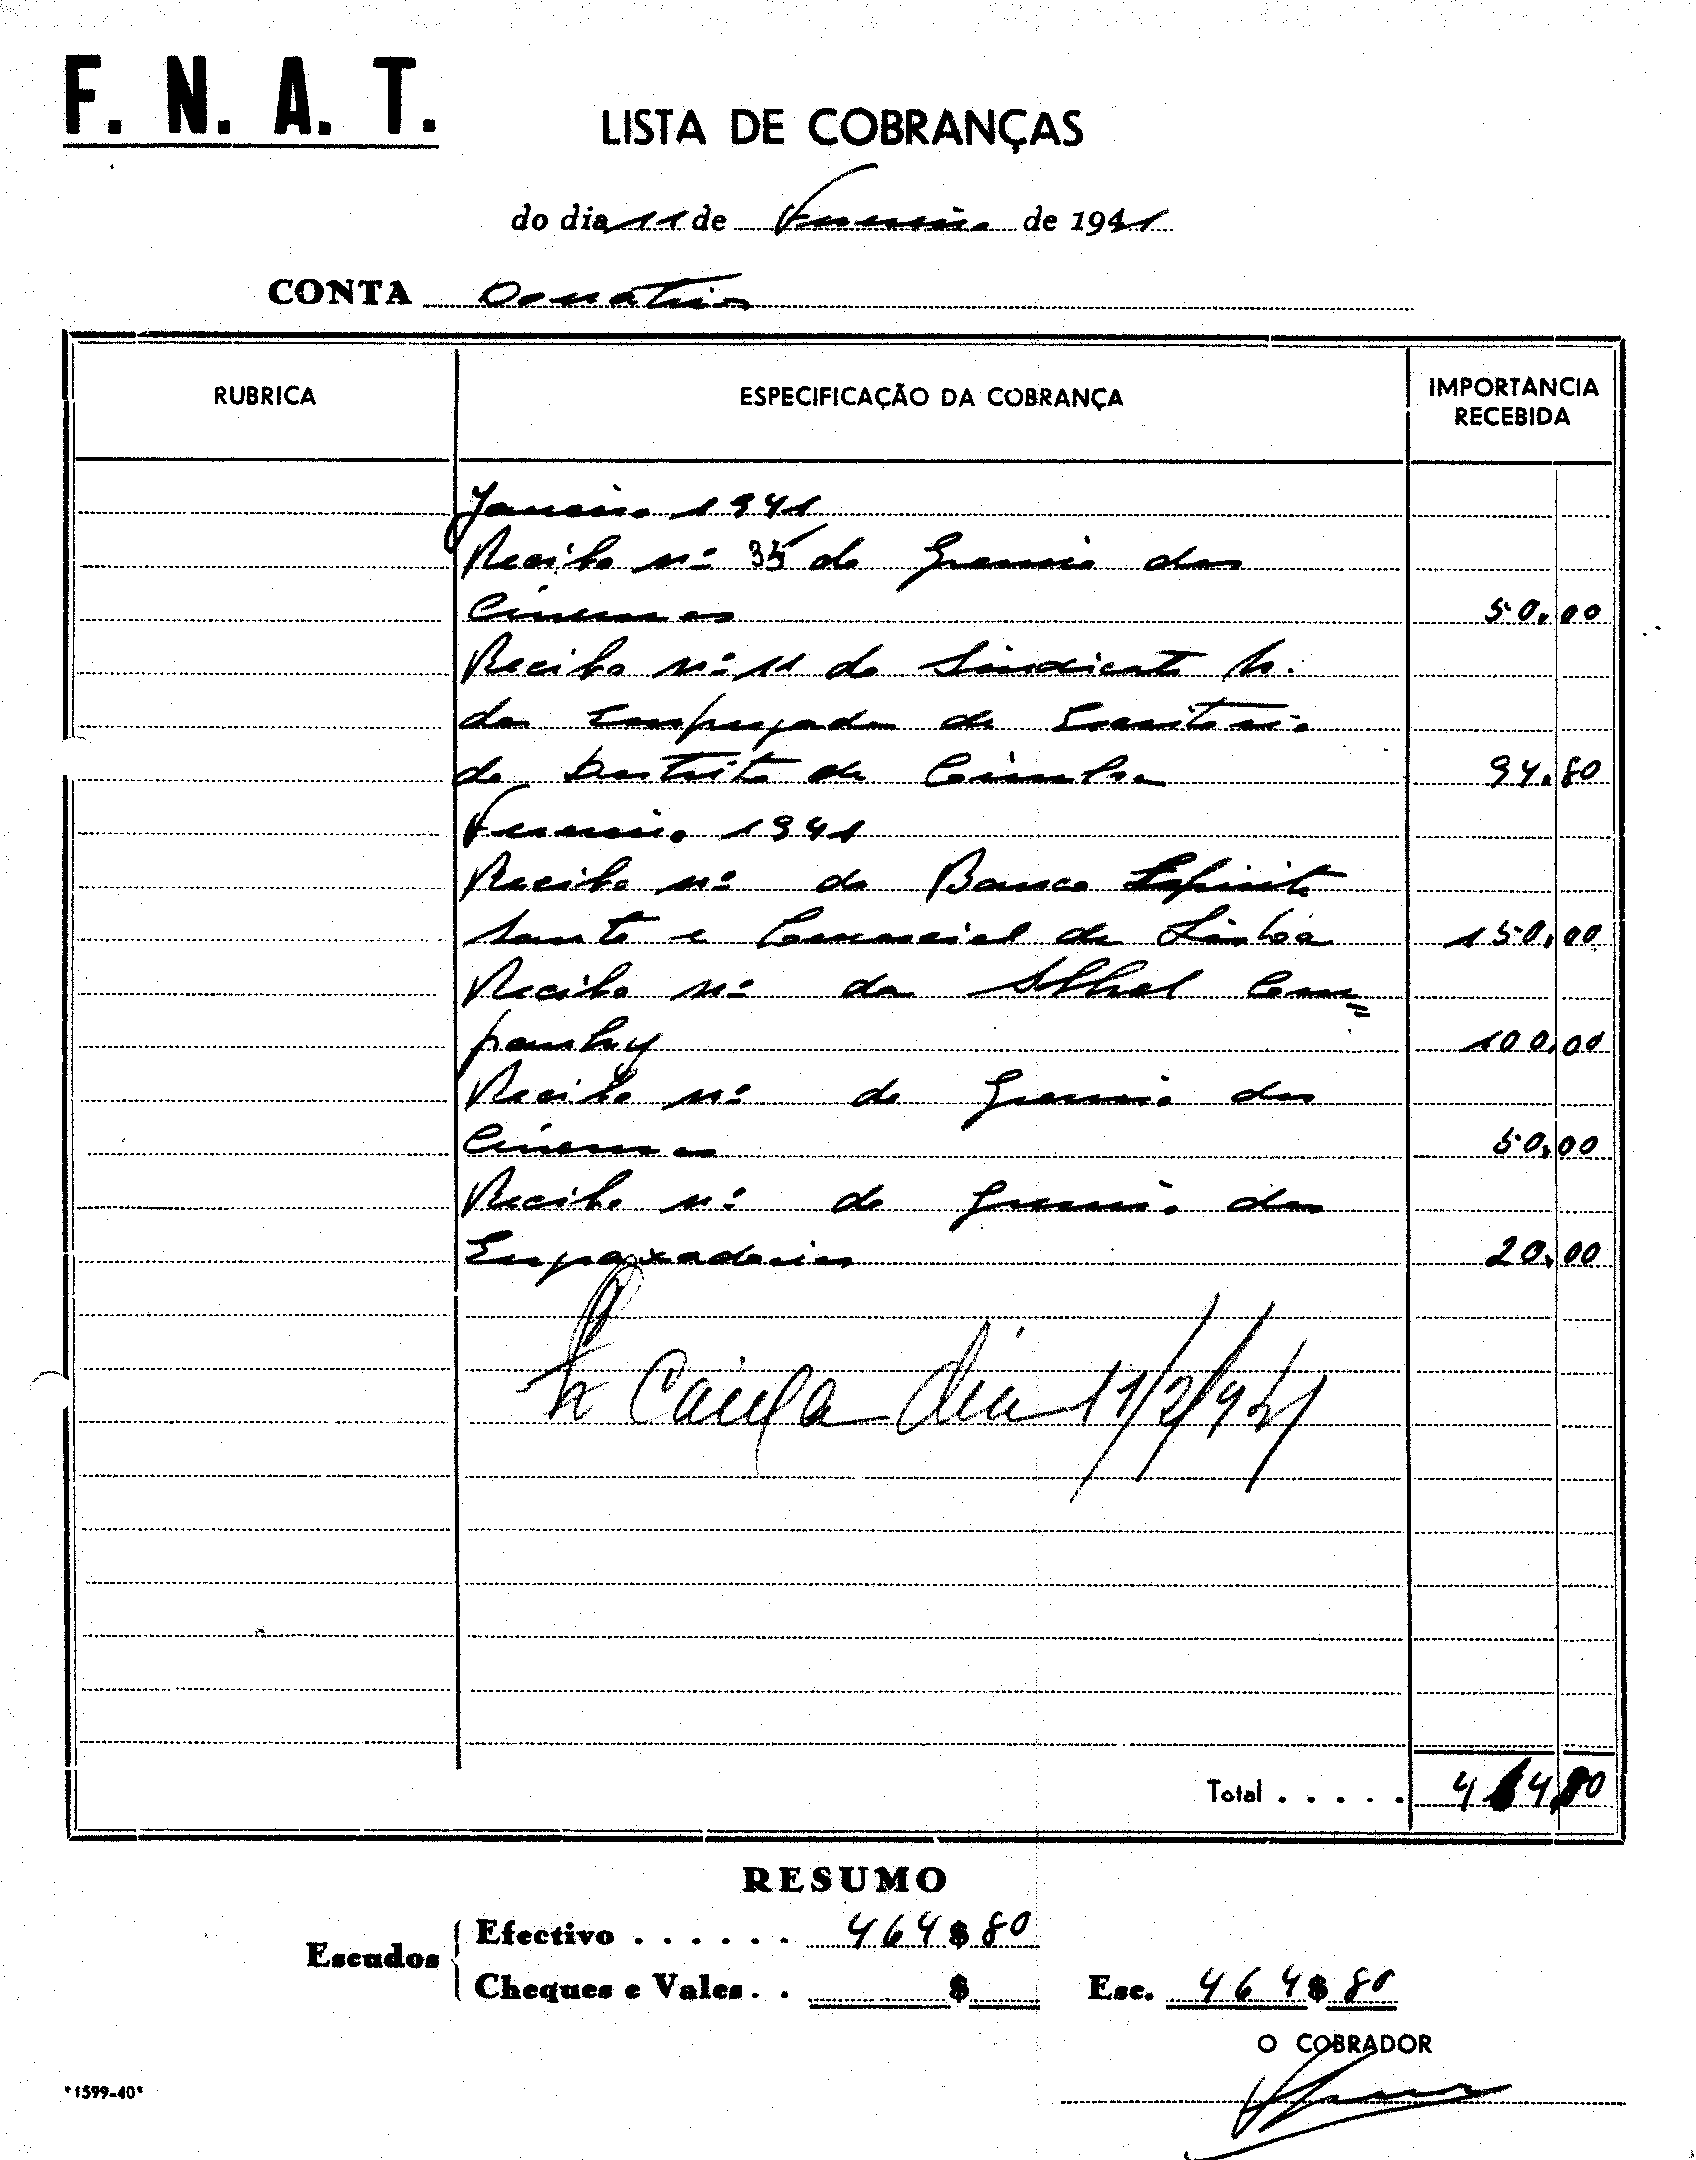 F. N. A. T.
LISTA DE COBRANÇAS
do dia 11 de Fevereiro de 1941
CONTA Donativos
RUBRICA
ESPECIFICAÇÃO DA COBRANÇA
IMPORTANCIA
RECEBIDA
Janeiro 1941
Recibo nº 35 do Gremio dos
Cinemas 50.00
Recibo nº 11 do Sindicato N.
dos Empregados de Escritorio
do Distrito de Coimbra 94.80
Fevereiro 1941
Recibo nº do Banco Espirito
Santo e Comercial de Lisboa 150.00
Recibo nº da Sthel Com=
panhy 100.00
Recibo nº do Gremio dos
Cinemas 50.00
Recibo nº do Gremio dos
20.00
Caixa dia 11/2/941
Total . . . . . 464.80
RESUMO
Escudos
Efectivo . . . . . . 464$80
Cheques e Vales. . $
Esc. 464$80
O COBRADOR
*1599-40*